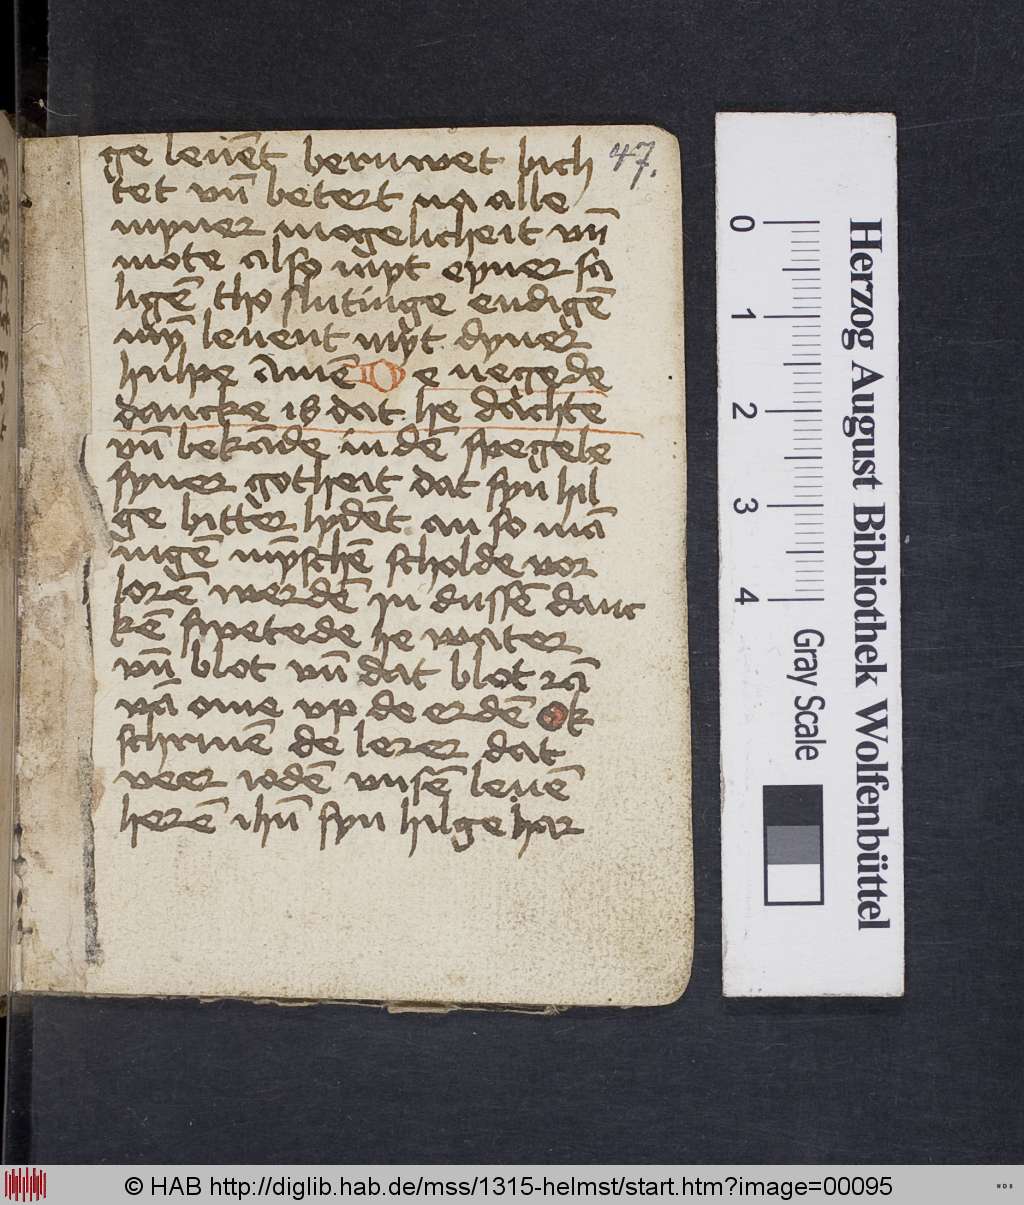 ge leuēt beruwet bich
47.
tet vn̄ betert na alle
myner mogelicheit vn̄
mote also myt eyner sa
ligē tho slutinge endigē
mȳ leuent myt dyner
hulpe āmē De negede
dancke is dat he dachte
vn̄ bekāde in dē spegele
syner gotheit dat syn hil
ge bitter lydēt an so mā
nigē mȳschē scholde vor
lorē werdē In dussē danc
kē swetede he water
vn̄ blot vn̄ dat blot rā
vā ome vp de erdē Ok
schriuē de lerer dat
veer iodē vnsē leuē
herē ihū syn hilge har
Herzog August Bibliothek Wolfenbüttel
0 1 2 3 4 Gray Scale
© HAB http://diglib.hab.de/mss/1315-helmst/start.htm?image=00095